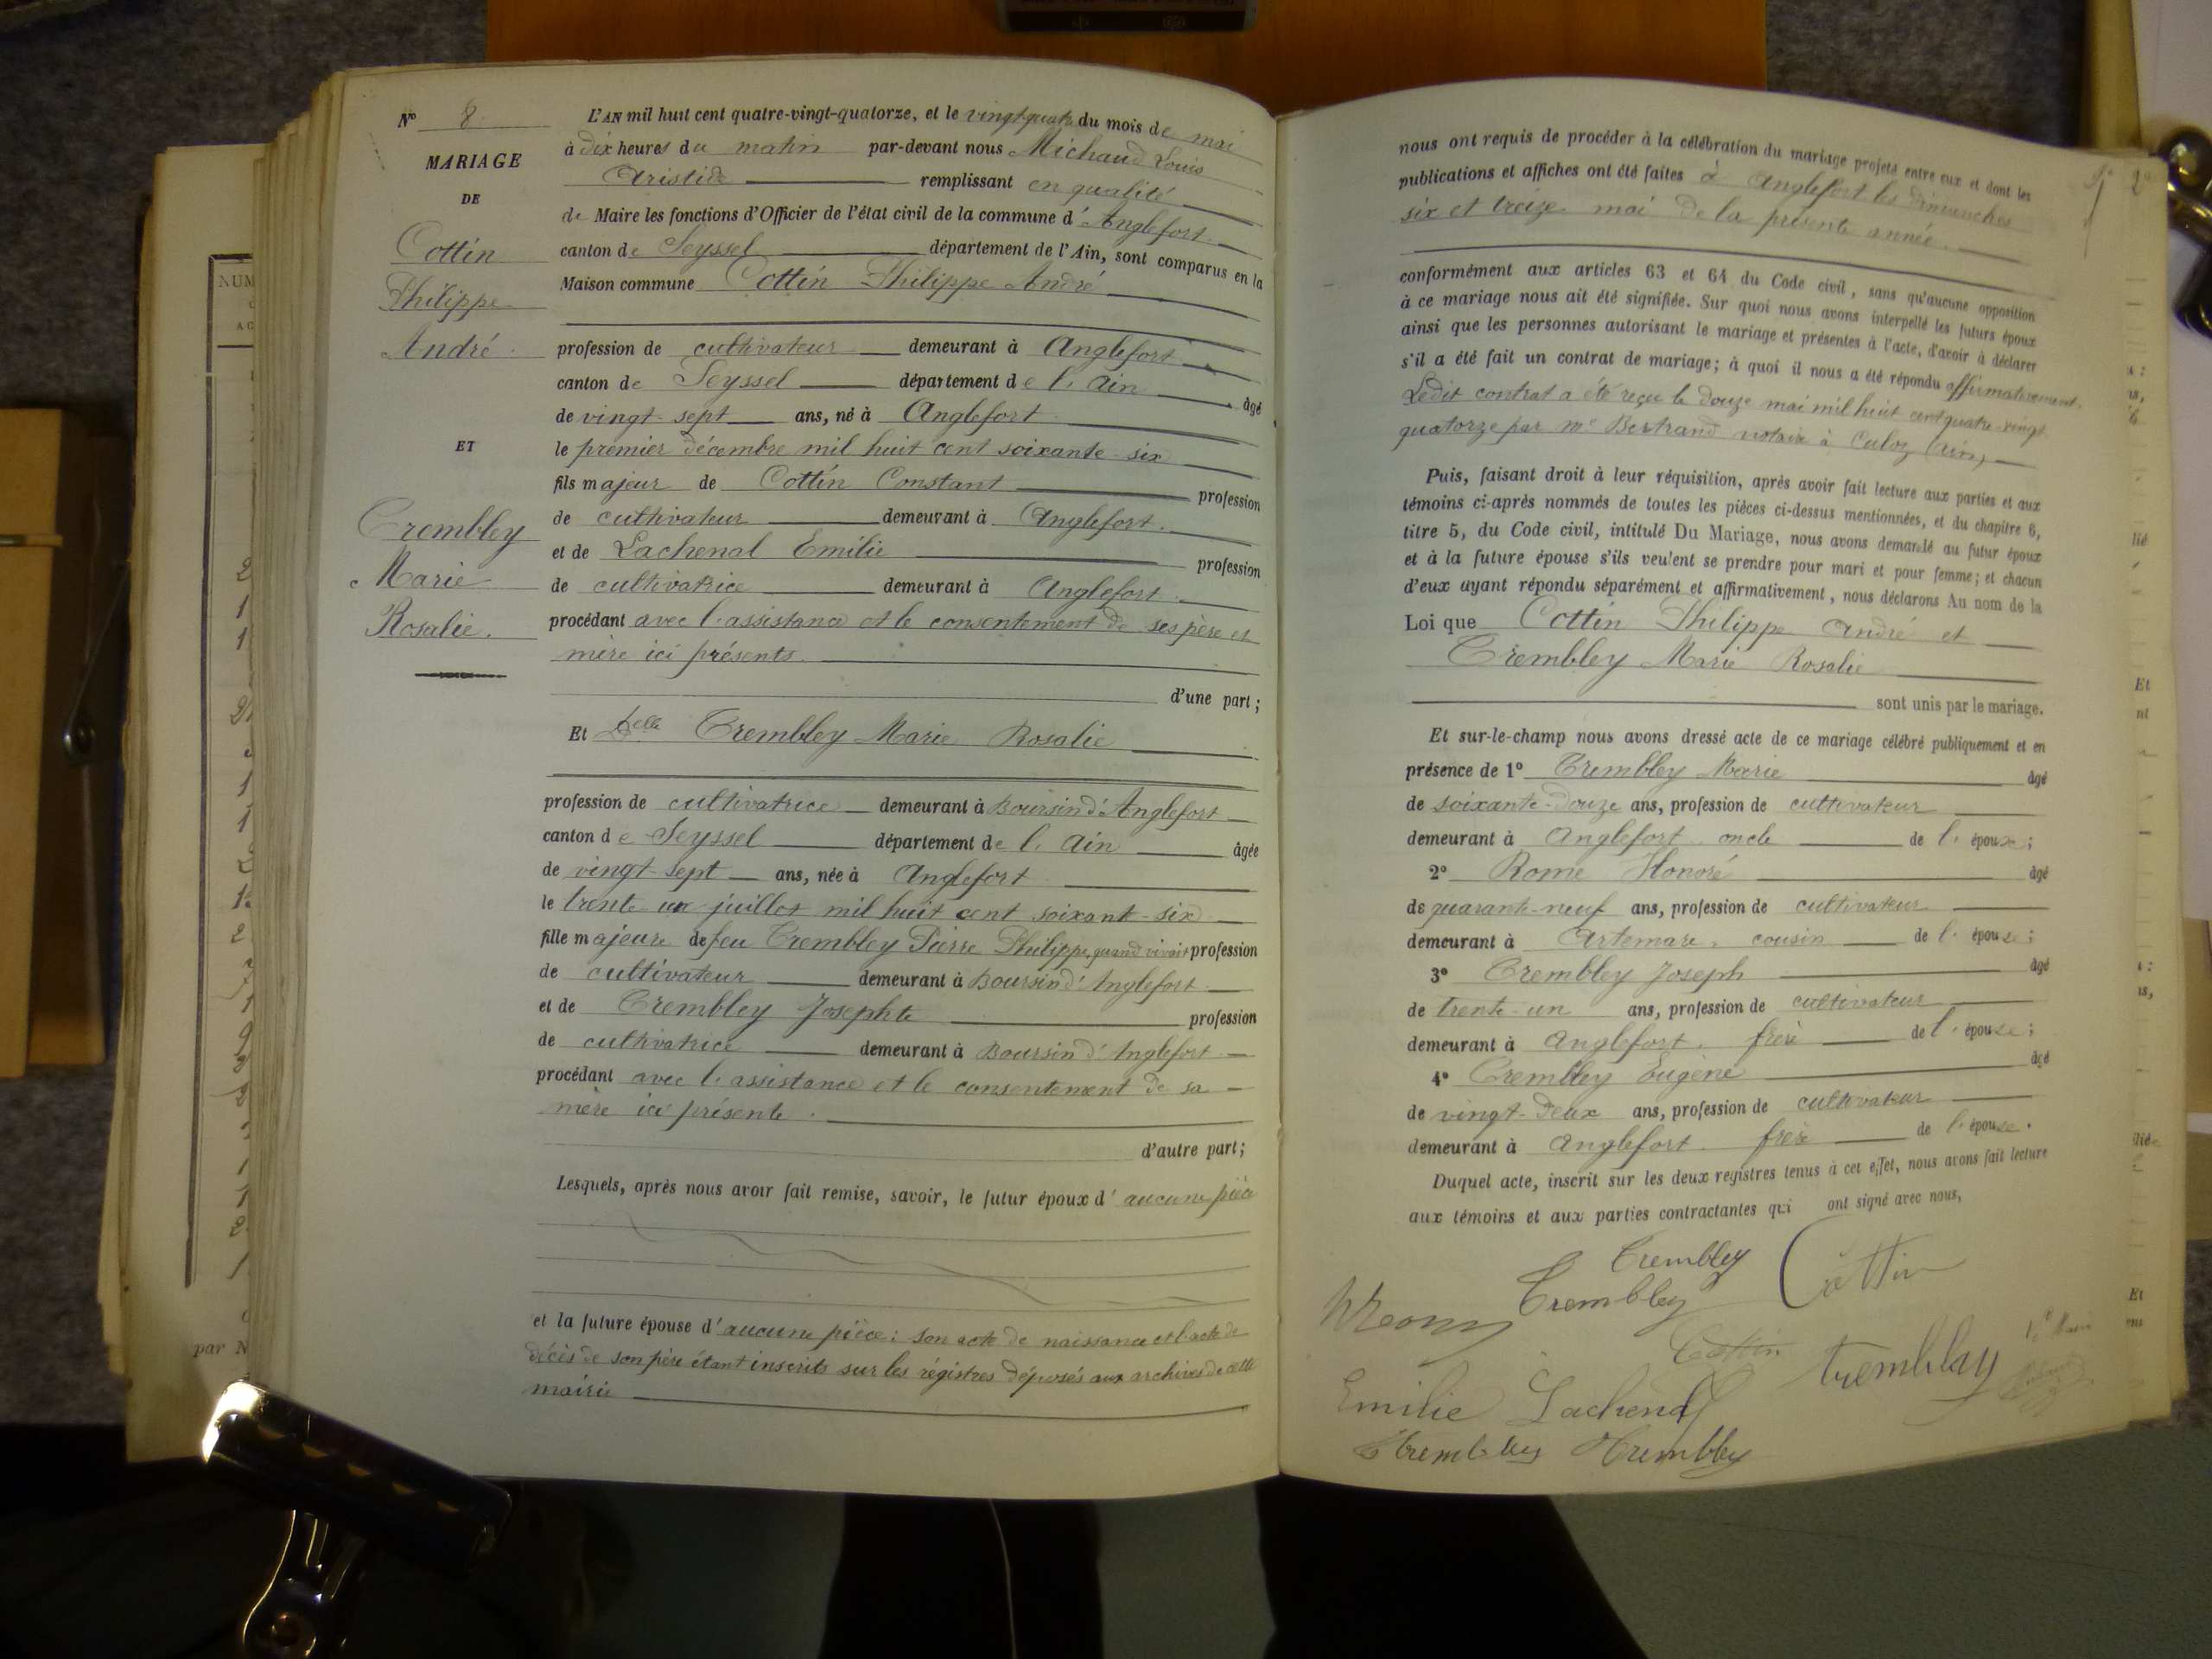 N° 8
MARIAGE
DE
Cottin
Philippe
André
ET
Trembley
Marie
Rosalie.
L'AN mil huit cent quatre-vingt-quatorze, et le vingt-quatre du mois de mai
à dix heures du matin par-devant nous Michaud Louis
Aristide remplissant en qualité
de Maire les fonctions d'Officier de l'état civil de la commune d'Anglefort
canton de Seyssel département de l'Ain, sont comparus en la
Maison commune Cottin Philippe André
profession de cultivateur demeurant à Anglefort
canton de Seyssel département de l'Ain âgé
de vingt-sept ans, né à Anglefort
le premier décembre mil huit cent soixante-six
fils majeur de Cottin Constant profession
de cultivateur demeurant à Anglefort.
et de Lachenal Emilie profession
de cultivatrice demeurant à Anglefort.
procédant avec l'assistance et le consentement de ses père et
mère ici présents.
d'une part;
Et Delle Trembley Marie Rosalie
profession de cultivatrice demeurant à Boursin d'Anglefort
canton de Seyssel département de l'Ain âgée
de vingt-sept ans, née à Anglefort
le trente un juillet mil huit cent soixante-six
fille majeure de feu Trembley Pierre Philippe, quand vivait profession
de cultivateur demeurant à Boursin d'Anglefort
et de Trembley Josephte profession
de cultivatrice demeurant à Boursin d'Anglefort
procédant avec l'assistance et le consentement de sa
mère ici présente.
d'autre part;
Lesquels, après nous avoir fait remise, savoir, le futur époux d'aucune pièce
et la future épouse d'aucune pièce: son acte de naissance et l'acte de
décès de son père étant inscrits sur les régistres déposés aux archives de cette
mairie
nous ont requis de procéder à la célébration du mariage projeté entre eux et dont les
publications et affiches ont été faites à Anglefort les dimanches
six et treize mai de la présente année.
conformément aux articles 63 et 64 du Code civil, sans qu'aucune opposition
à ce mariage nous ait été signifiée. Sur quoi nous avons interpellé les futurs époux
ainsi que les personnes autorisant le mariage et présentes à l'acte, d'avoir à déclarer
s'il a été fait un contrat de mariage; à quoi il nous a été répondu affirmativement.
Ledit contrat a été reçu le douze mai mil huit cent quatre-vingt
quatorze par Me Bertrand notaire à Culoz (Ain)
Puis, faisant droit à leur réquisition, après avoir fait lecture aux parties et aux
témoins ci-après nommés de toutes les pièces ci-dessus mentionnées, et du chapitre 6,
titre 5, du Code civil, intitulé Du Mariage, nous avons demandé au futur époux
et à la future épouse s'ils veulent se prendre pour mari et pour femme; et chacun
d'eux ayant répondu séparément et affirmativement, nous déclarons Au nom de la
Loi que Cottin Philippe André et
Trembley Marie Rosalie
sont unis par le mariage.
Et sur-le-champ nous avons dressé acte de ce mariage célébré publiquement et en
présence de 1° Trembley Marie âgé
de soixante-douze ans, profession de cultivateur
demeurant à Anglefort, oncle de l'époux;
2° Rome Honoré âgé
de quarante-neuf ans, profession de cultivateur
demeurant à Artemare, cousin de l'épouse;
3° Trembley Joseph âgé
de trente-un ans, profession de cultivateur
demeurant à Anglefort, frère de l'épouse;
4° Trembley Eugène âgé
de vingt-deux ans, profession de cultivateur
demeurant à Anglefort frère de l'épouse.
Duquel acte, inscrit sur les deux registres tenus à cet effet, nous avons fait lecture
aux témoins et aux parties contractantes qui ont signé avec nous,
Trembley Cottin
Trembley
Cottin
tremblay
Emilie Lachenal
Trembley Trembley